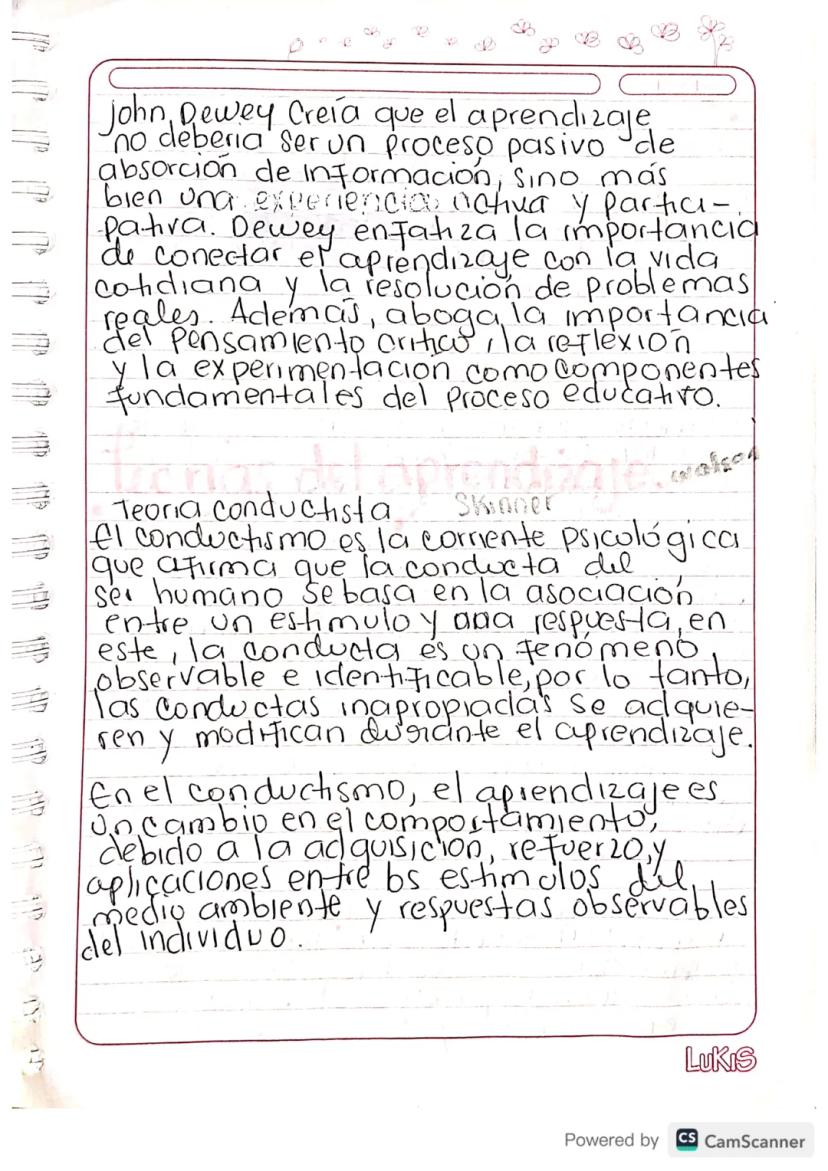 John, Dewey Creía que el aprendizaje
no deberia ser un proceso pasivo de
absorción de información, sino más
bien una experiencia activa y partici-
pativa. Dewey enfatiza la importancia
de conectar el aprendizaje con la vida
cotidiana y la resolución de problemas
reales. Además, aboga la importancia
del pensamiento critico, la reflexión
y la experimentación como componentes
fundamentales del proceso educativo.
Teorias del aprendizaje.
watson
Teoria conductista Skinner
El conductismo es la corriente psicológica
que afirma que la conducta del
ser humano se basa en la asociación
entre un estimulo y una respuesta, en
este, la conducta es un fenómeno
observable e identificable, por lo tanto,
las conductas inapropiadas se adquie-
ren y modifican durante el aprendizaje.
En el conductismo, el aprendizaje es
un cambio en el comportamiento,
debido a la adquisición, refuerzo, y
aplicaciones entre los estimulos del
medio ambiente y respuestas observables
del individuo.
LUKIS
Powered by CS CamScanner